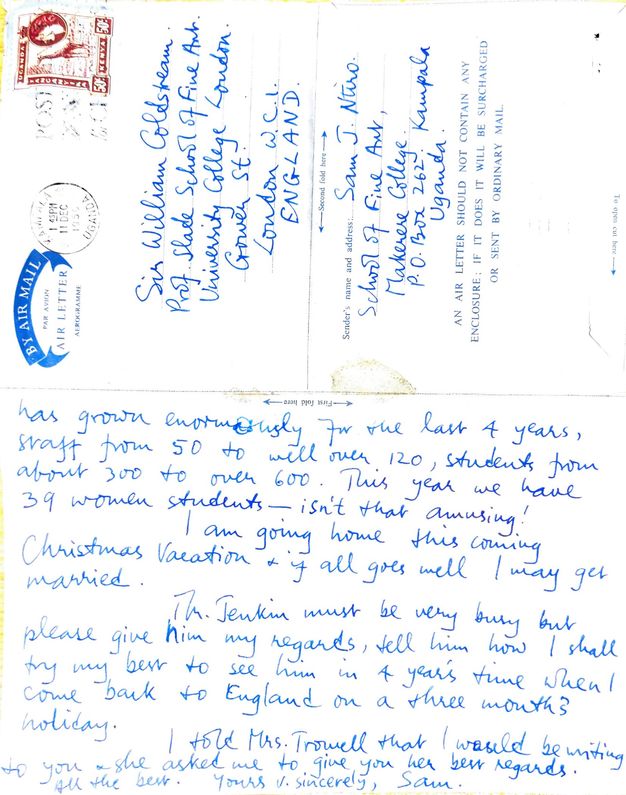 UGANDA
KENYA
50c
50c
POST
11 DEC
UGANDA
BY AIR MAIL
PAR AVION
AIR LETTER
AEROGRAMME
Sir William Coldstream.
Prof. Slade School of Fine Art.
University College London.
Gower St.
London W.C.1.
ENGLAND.
Second fold here
Sender's name and address:— Sam J. Ntiro.
School of Fine Art,
Makerere College
P.O. Box 262 Kampala
Uganda.
AN AIR LETTER SHOULD NOT CONTAIN ANY
ENCLOSURE; IF IT DOES IT WILL BE SURCHARGED
OR SENT BY ORDINARY MAIL.
To open cut here
First fold here
has grown enormously for the last 4 years,
staff from 50 to well over 120, students from
about 300 to over 600. This year we have
39 women students — isn't that amusing!
I am going home this coming
Christmas Vacation & if all goes well I may get
married.
Mr. Jenkin must be very busy but
please give him my regards, tell him how I shall
try my best to see him in 4 year's time when I
come back to England on a three months
holiday.
I told Mrs. Trowell that I would be writing
to you & she asked me to give you her best regards.
All the best. Yours v. sincerely, Sam.